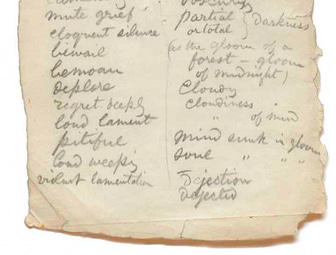 mute grief
eloquent silence
bewail
bemoan
deplore
regret deeply
loud lament
pitiful
loud weeping
violent lamentation
obscurity
partial } Darkness
or total
(as the gloom of a
forest – gloom
of midnight)
Cloudy
cloudiness
" of mind
mind sunk in gloom
soul " " "
Dejection
Dejected